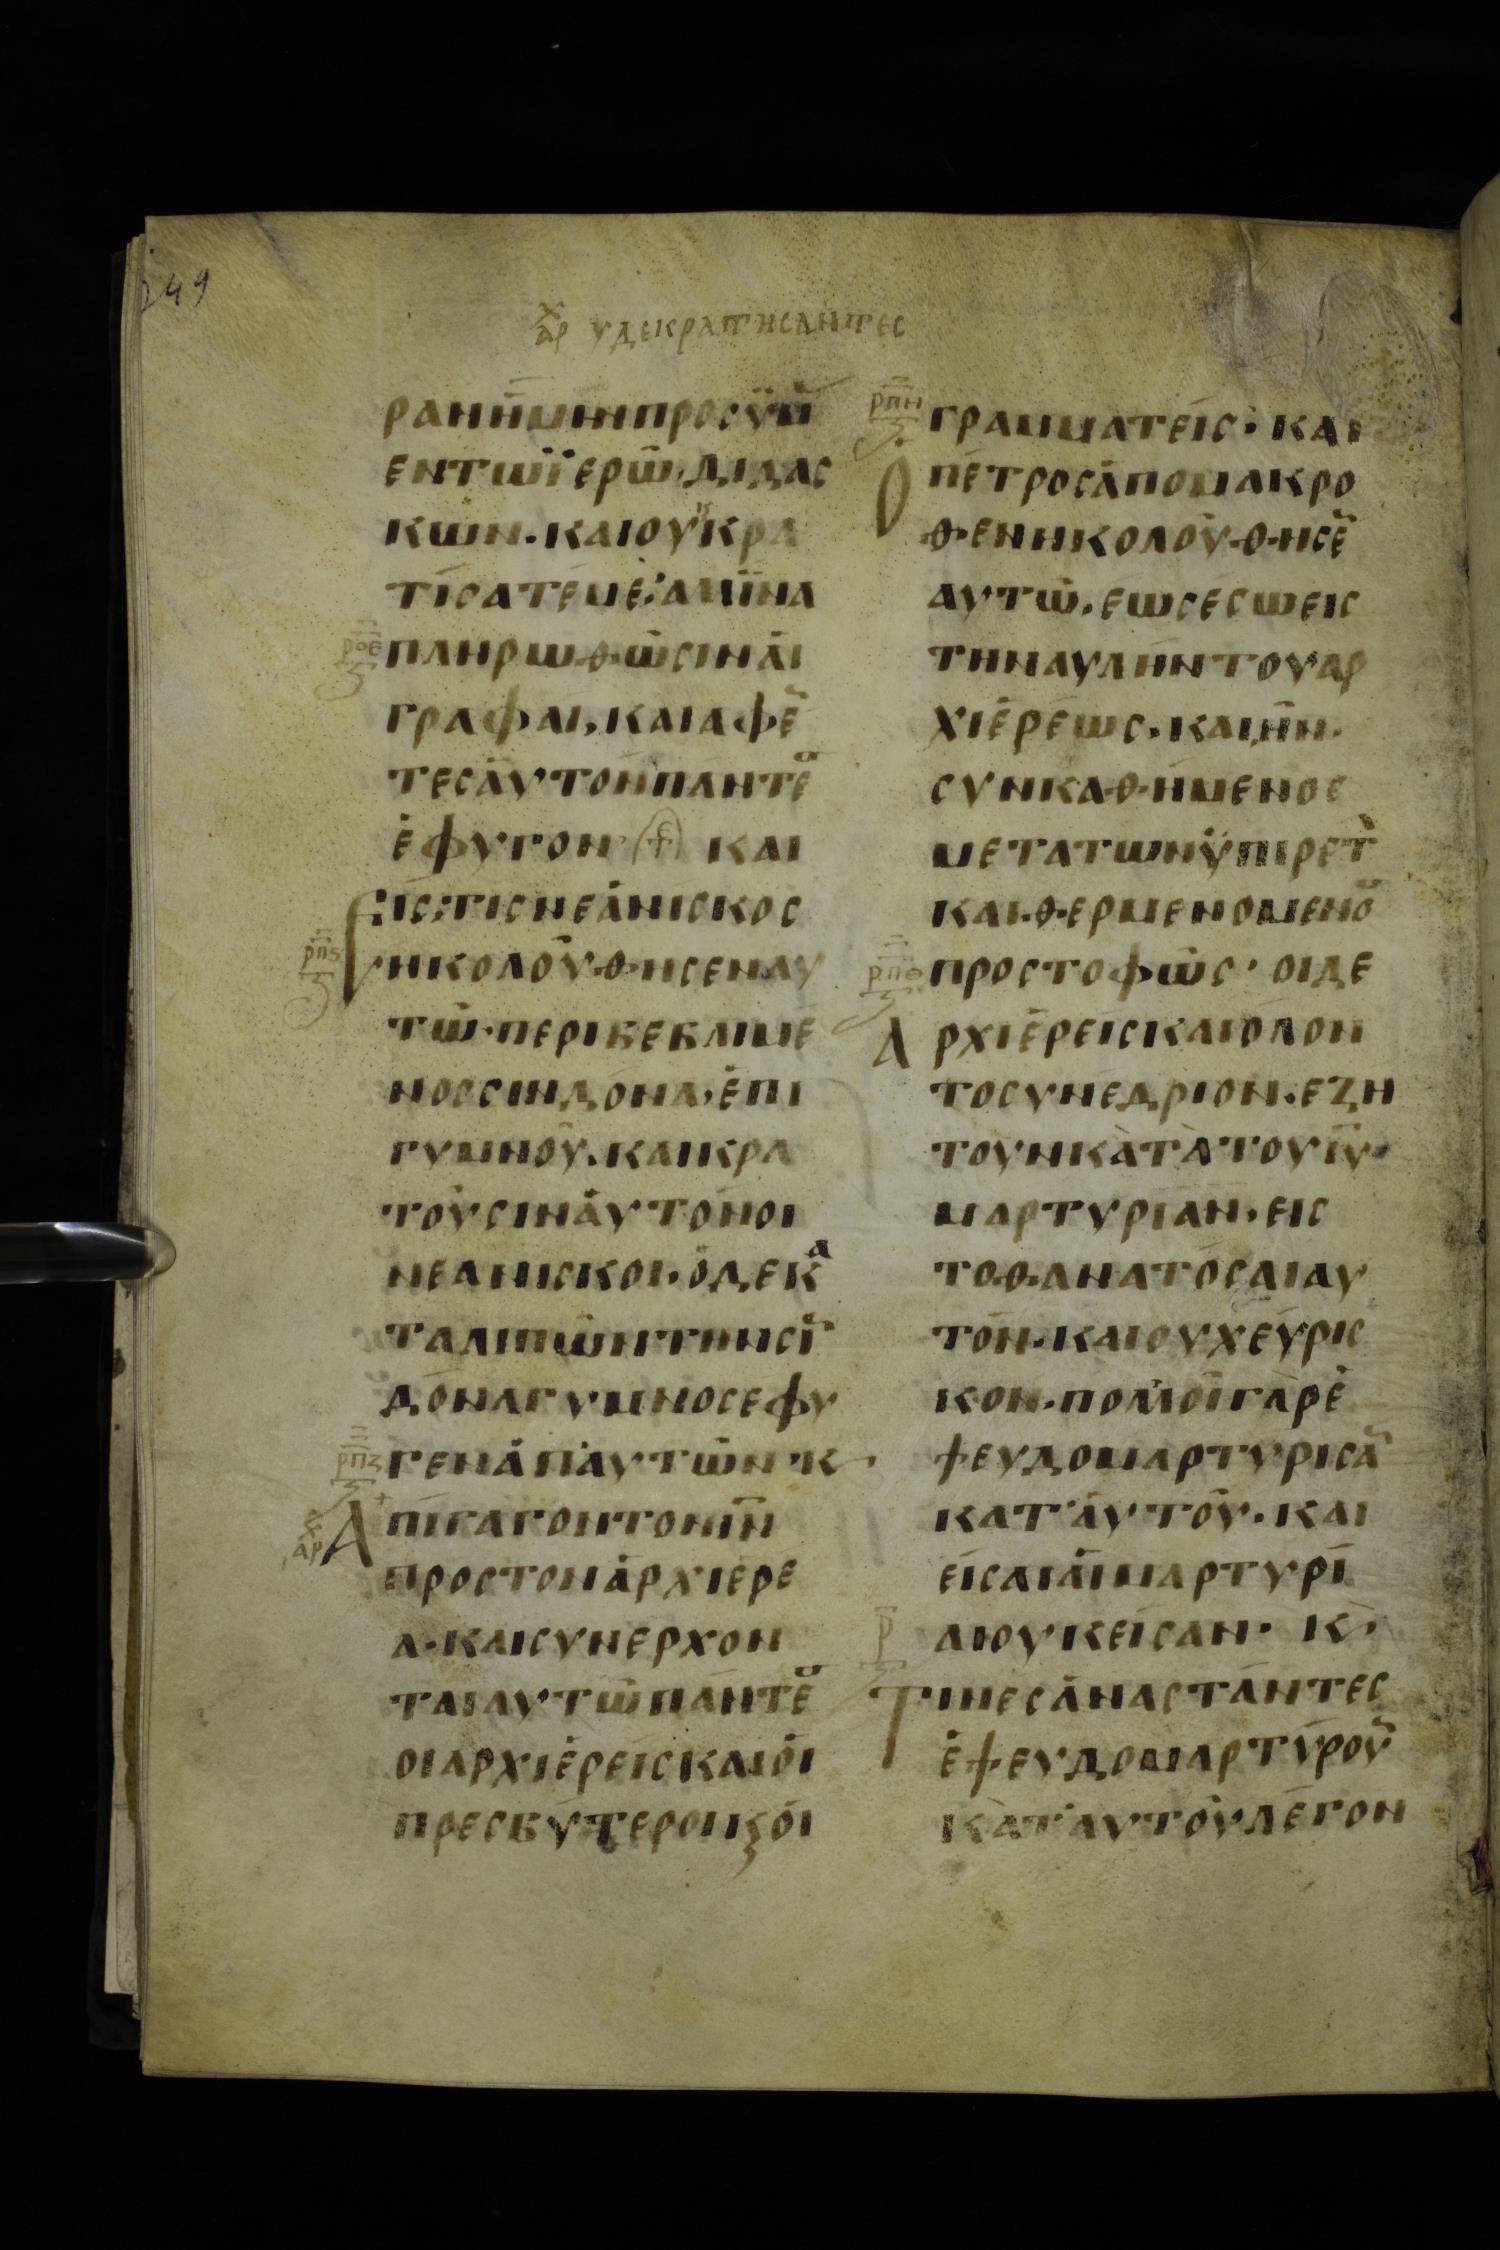 249
χ
αρ υδεκρατησαντες
ρανήμηνπροσϋμ
εντωϊερω, διδας
κων·καιουκκρα
τίσατέμε·αλλϊνα
ροε
πληρωθωσιναι
γραφαι, καιαφε
τεσαυτονπαντε
εφυγον (τε) και
Εις·τισνεανισκος
ρπς
ηκολουθησεναυ
τω·περιβεβλιμε
νοσσινδονα, επι
γυμνου·καικρα
τουσιναυτονοι
νεανισκοι·οδεκα
ταλιπωντηνσι
δοναγυμνοσεφυ
ρπζ
γεναπαυτων·κ
χ
αρ
Απιγαγοντονιν
προστοναρχιερε
α·καισυνερχον
ταιαυτωπαντε
οιαρχιερεισκαιοι
πρεσβυτεροικϗοι
ρπη
γραμματεις·και
Ο πετροσαπομακρο
θενηκολουθησε
αυτω·εωσεσωεις
τηναυληντουαρ
χιερεως·καιην·
συνκαθημενος
μετατωνϋπιρετ
καιθερμενομενο
ρπθ
προστοφως· οιδε
Αρχιερεισκαιολον
τοσυνεδριον·εζη
τουνκατατουιυ·
μαρτυριαν·εις
τοθανατοσαιαυ
τον·καιουχευρις
κον·πολλοιγαρε
ψευδομαρτυρισα
καταυτου·και
εισαιαιμαρτυρι
ρ
αιουκεισαν· κ,
Τινεσανασταντες
εψευδομαρτυρου
καταυτουλεγον